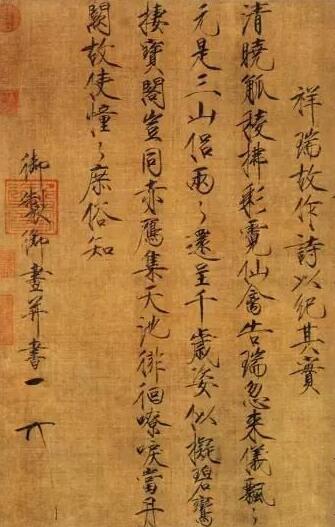 祥瑞故作詩以紀其實
清曉觚稜拂彩霓仙禽告瑞忽來儀飄〻
元是三山侶兩〻還呈千歲姿似擬碧鸞
棲寶閣豈同赤鴈集天池徘徊嘹唳當丹
闕故使憧〻庶俗知
御製御畫并書